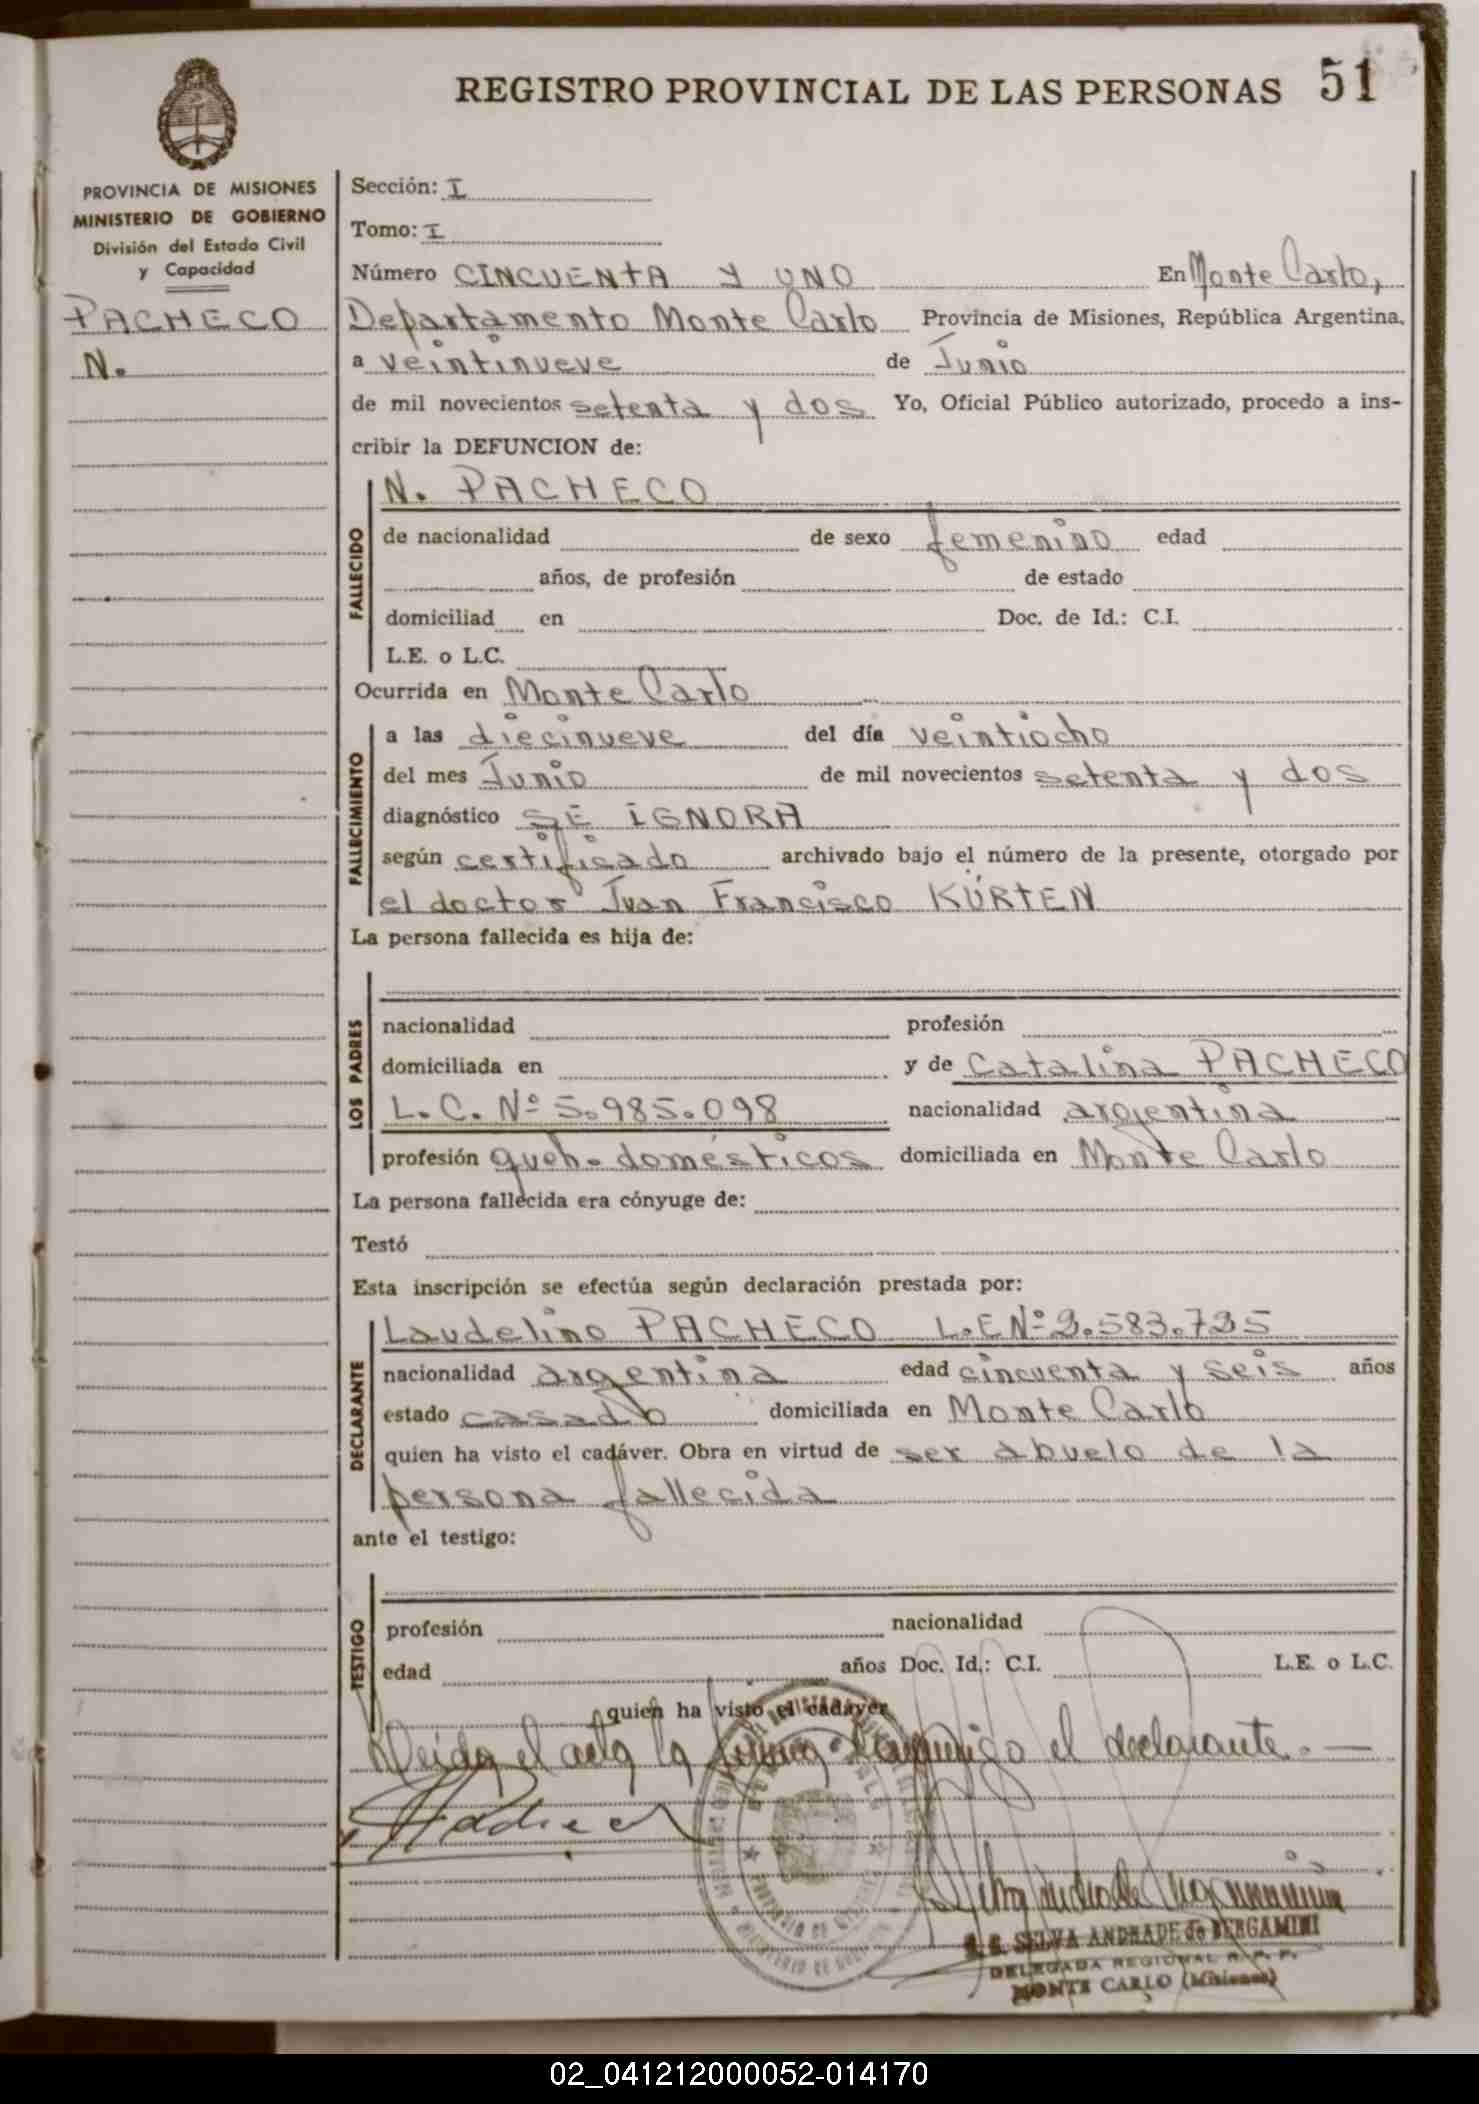 REGISTRO PROVINCIAL DE LAS PERSONAS 51
PROVINCIA DE MISIONES
MINISTERIO DE GOBIERNO
División del Estado Civil
y Capacidad
PACHECO
N.
Sección: I
Tomo: I
Número CINCUENTA Y UNO En Monte Carlo,
Departamento Monte Carlo Provincia de Misiones, República Argentina,
a veintinueve de Junio
de mil novecientos setenta y dos Yo, Oficial Público autorizado, procedo a ins-
cribir la DEFUNCION de:
FALLECIDO
N. PACHECO
de nacionalidad de sexo femenino edad
años, de profesión de estado
domiciliad en Doc. de Id.: C.I.
L.E. o L.C.
Ocurrida en Monte Carlo
FALLECIMIENTO
a las diecinueve del día veintiocho
del mes Junio de mil novecientos setenta y dos
diagnóstico SE IGNORA
según certificado archivado bajo el número de la presente, otorgado por
el doctor Juan Francisco KÜRTEN
La persona fallecida es hija de:
LOS PADRES
nacionalidad profesión
domiciliada en y de Catalina PACHECO
L.C. Nº 5.985.098 nacionalidad argentina
profesión queh. domésticos domiciliada en Monte Carlo
La persona fallecida era cónyuge de:
Testó
Esta inscripción se efectúa según declaración prestada por:
DECLARANTE
Laudelino PACHECO L.E Nº 2.583.725
nacionalidad argentina edad cincuenta y seis años
estado casado domiciliada en Monte Carlo
quien ha visto el cadáver. Obra en virtud de ser abuelo de la
persona fallecida
ante el testigo:
TESTIGO
profesión nacionalidad
edad años Doc. Id.: C.I. L.E. o L.C.
quien ha visto el cadáver
Leida el acta la firma conmigo el declarante. —
S. S. SELVA ANDRADE de BERGAMINI
DELEGADA REGIONAL R. P. P.
MONTE CARLO (Misiones)
02_041212000052-014170